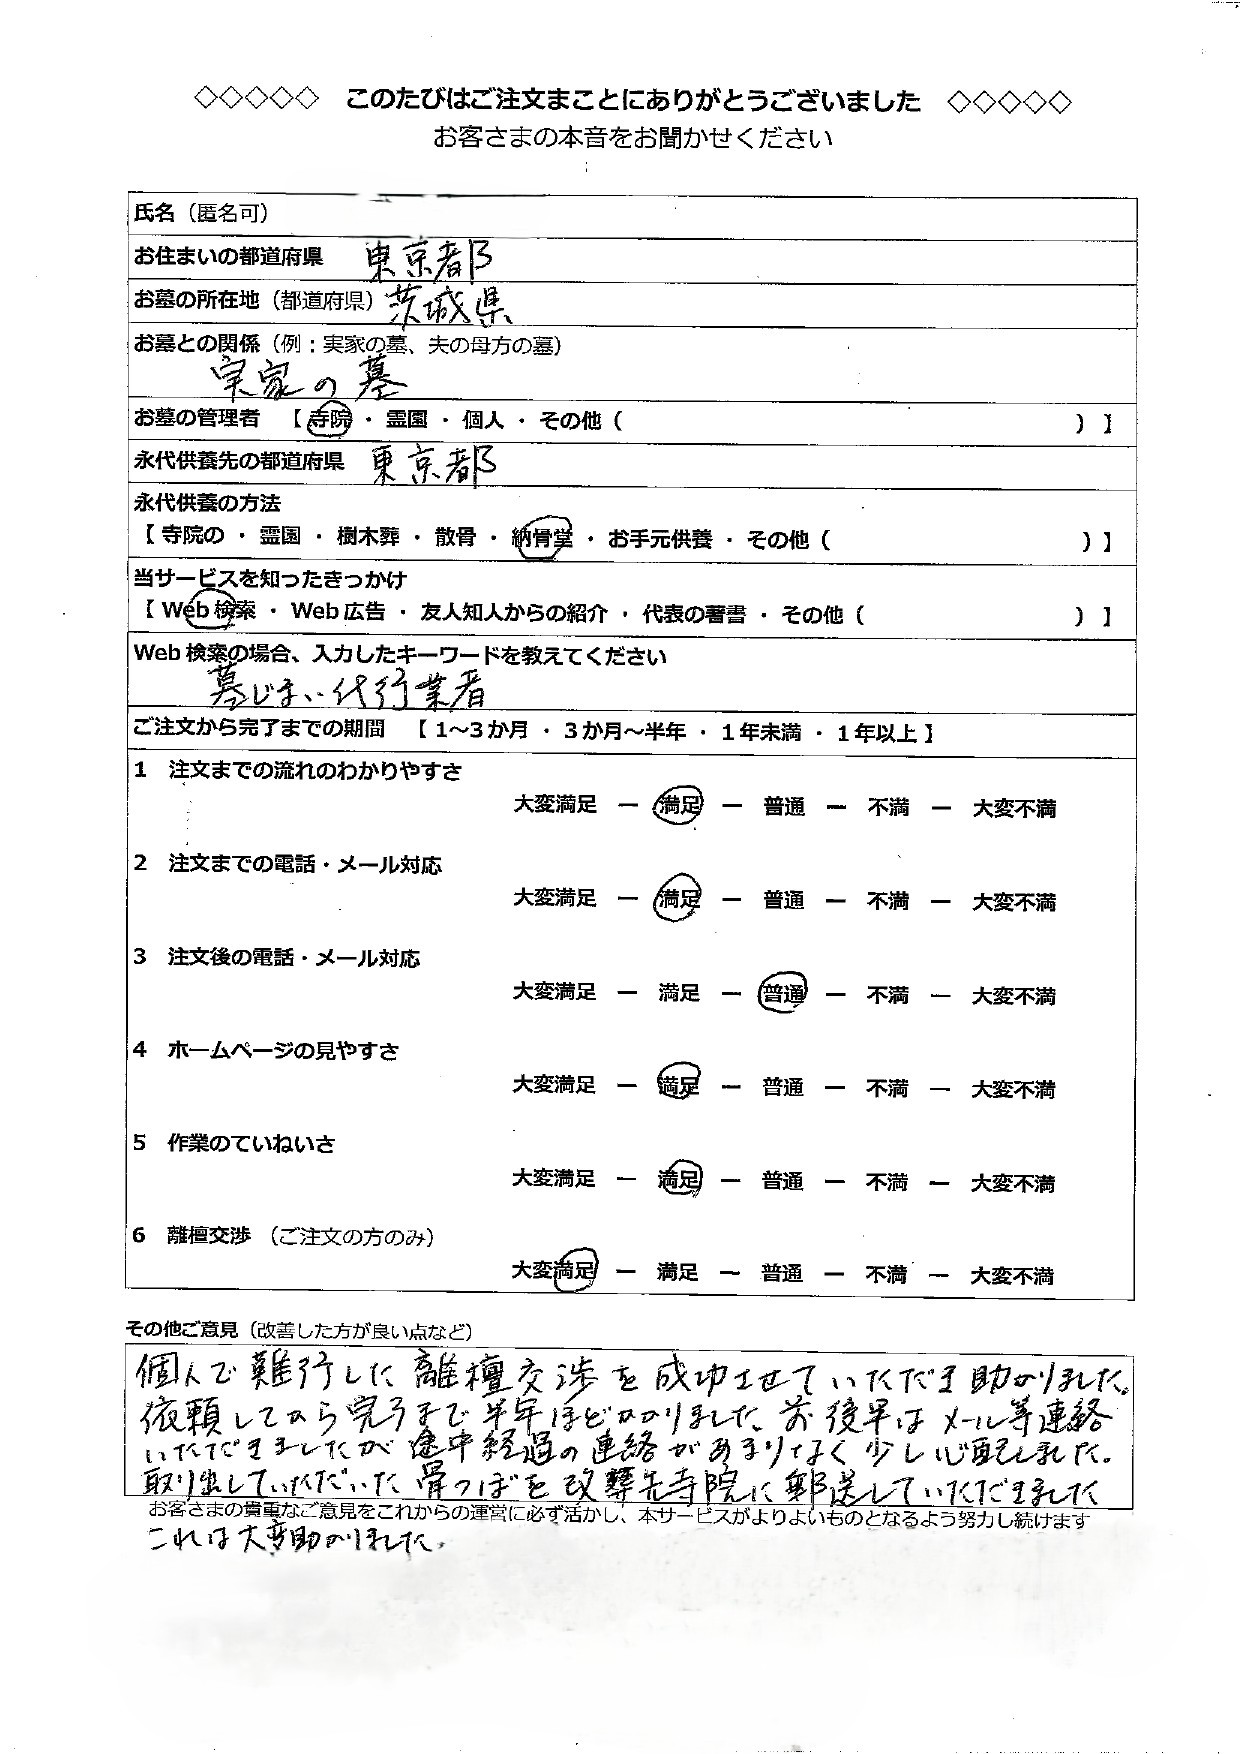 ◇◇◇◇◇ このたびはご注文まことにありがとうございました ◇◇◇◇◇
お客さまの本音をお聞かせください
氏名（匿名可）
お住まいの都道府県 東京都
お墓の所在地（都道府県）茨城県
お墓との関係（例：実家の墓、夫の母方の墓）
実家の墓
お墓の管理者 【 寺院 ・ 霊園 ・ 個人 ・ その他（ ）】
永代供養先の都道府県 東京都
永代供養の方法
【 寺院の ・ 霊園 ・ 樹木葬 ・ 散骨 ・ 納骨堂 ・ お手元供養 ・ その他（ ）】
当サービスを知ったきっかけ
【 Web検索 ・ Web広告 ・ 友人知人からの紹介 ・ 代表の著書 ・ その他（ ）】
Web検索の場合、入力したキーワードを教えてください
墓じまい代行業者
ご注文から完了までの期間 【 1～3か月 ・ 3か月～半年 ・ 1年未満 ・ 1年以上 】
1 注文までの流れのわかりやすさ
大変満足 － 満足 － 普通 － 不満 － 大変不満
2 注文までの電話・メール対応
大変満足 － 満足 － 普通 － 不満 － 大変不満
3 注文後の電話・メール対応
大変満足 － 満足 － 普通 － 不満 － 大変不満
4 ホームページの見やすさ
大変満足 － 満足 － 普通 － 不満 － 大変不満
5 作業のていねいさ
大変満足 － 満足 － 普通 － 不満 － 大変不満
6 離檀交渉 （ご注文の方のみ）
大変満足 － 満足 － 普通 － 不満 － 大変不満
その他ご意見（改善した方が良い点など）
個人で難行した離檀交渉を成功させていただき助かりました。
依頼してから完了まで半年ほどかかりました、前後半はメール等連絡
いただきましたが途中経過の連絡があまりなく少し心配しました。
取り出していただいた骨つぼを改葬先寺院に郵送していただきました
お客さまの貴重なご意見をこれからの運営に必ず活かし、本サービスがよりよいものとなるよう努力し続けます
これは大変助かりました。